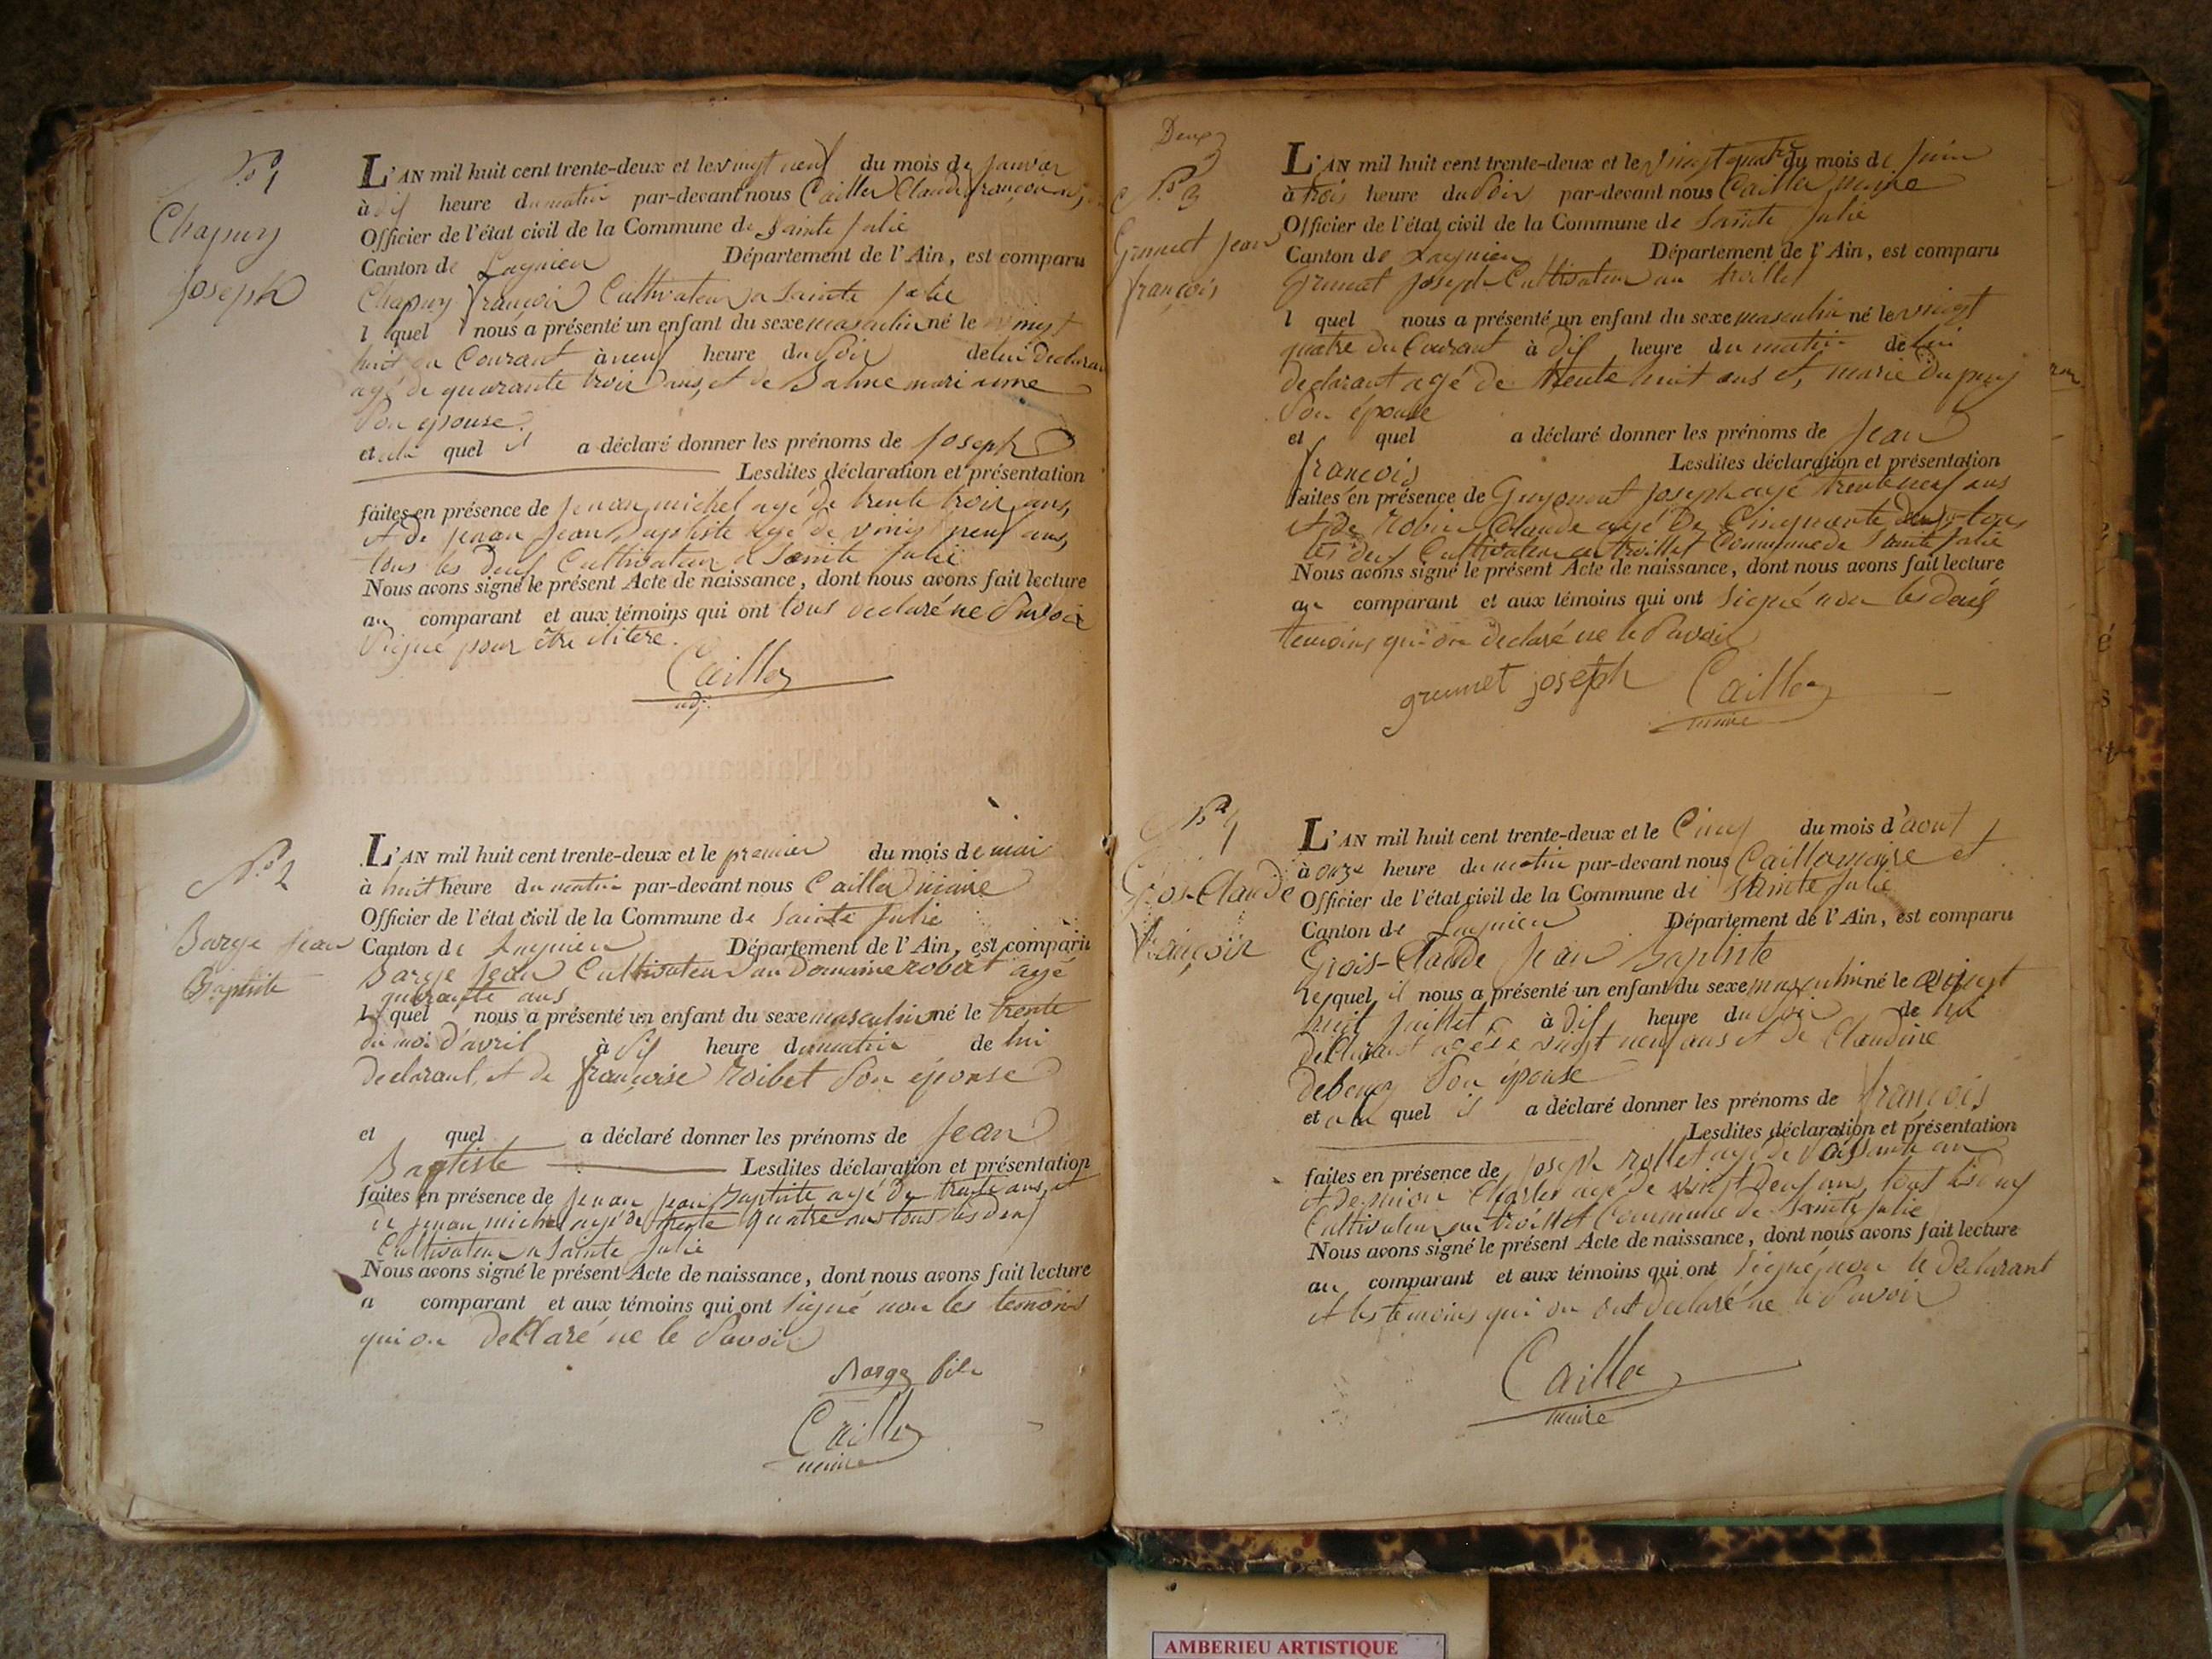 N.o 1
Chapuy
Joseph
L'AN mil huit cent trente-deux et le vingt neuf du mois de janvier
à dix heure du matin par-devant nous Cailler Claude françois
Officier de l'état civil de la Commune de Sainte Julie
Canton de Lagnieu Département de l'Ain, est comparu
Chapuy françois Cultivateur a Sainte Julie
l quel nous a présenté un enfant du sexe masculin né le vingt
huit du Courant à neuf heure du Soir de lui declarant
agé de quarante trois ans, et de Balme mari anne
Son épouse
et quel il a déclaré donner les prénoms de Joseph
Lesdites déclaration et présentation
faites en présence de Junan michel agé de trente trois ans,
et de Junan Jean Baptiste agé de vingt neuf ans,
tous les deux Cultivateur a Sainte Julie
Nous avons signé le présent Acte de naissance, dont nous avons fait lecture
au comparant et aux témoins qui ont tous declaré ne Savoir
Signé pour être ilitere.
Cailler
adj.
N.o 2
Barge Jean
Baptiste
L'AN mil huit cent trente-deux et le premier du mois de mai
à huit heure du matin par-devant nous Cailler maire
Officier de l'état civil de la Commune de Sainte Julie
Canton de Lagnieu Département de l'Ain, est comparu
Barge Jean Cultivateur au Domaine robert agé
quarante ans
l quel nous a présenté un enfant du sexe masculin né le trente
du moi d'avril à dix heure du matin de lui
declarant, et de françoise roibet Son épouse
et quel a déclaré donner les prénoms de Jean
Baptiste Lesdites déclaration et présentation
faites en présence de Junan Jean Baptiste agé de trente ans, et
de Junan michel agé de trente quatre ans tous les deux
Cultivateur a Sainte Julie
Nous avons signé le présent Acte de naissance, dont nous avons fait lecture
a comparant et aux témoins qui ont Signé non les temoins
qui on declaré ne le Savoir
Barge
Cailler
maire
Deux
N.o 3
Grumet Jean
françois
L'AN mil huit cent trente-deux et le vingt quatre du mois de Juin
à trois heure du Soir par-devant nous Cailler maire
Officier de l'état civil de la Commune de Sainte Julie
Canton de Lagnieu Département de l'Ain, est comparu
Grumet Joseph Cultivateur au trollet
l quel nous a présenté un enfant du sexe masculin né le vingt
quatre du Courant à dix heure du matin de lui
declarant agé de trente huit ans et, marie Dupuy
Son épouse
et quel a déclaré donner les prénoms de Jean
françois Lesdites déclaration et présentation
faites en présence de Guyonnet Joseph agé trente neuf ans
et de robin Claude agé De Cinquante deux tous
les deux Cultivateur au trollet Commune de Sainte Julie
Nous avons signé le présent Acte de naissance, dont nous avons fait lecture
au comparant et aux témoins qui ont Signé non les deux
temoins qui on declaré ne le Savoir
grumet joseph Cailler
maire
N.o 4
Grois-Claude
françois
L'AN mil huit cent trente-deux et le Cinq du mois d'aout
à onze heure du matin par-devant nous Cailler maire et
Officier de l'état civil de la Commune de Sainte Julie
Canton de Lagnieu Département de l'Ain, est comparu
Grois-Claude Jean Baptiste
lequel il nous a présenté un enfant du sexe masculin né le vingt
huit Juillet à dix heure du Soir de lui
declarant agé de vingt neuf ans et de Claudine
Son épouse
et a la quel il a déclaré donner les prénoms de françois
Lesdites déclaration et présentation
faites en présence de Joseph rollet agé de Soissante an
et de Charles agé de vingt deux ans, tous les deux
Cultivateur au trollet Commune de Sainte Julie
Nous avons signé le présent Acte de naissance, dont nous avons fait lecture
au comparant et aux témoins qui ont Signé non le declarant
et les temoins qui on ont declaré ne le Savoir
Cailler
maire
AMBERIEU ARTISTIQUE